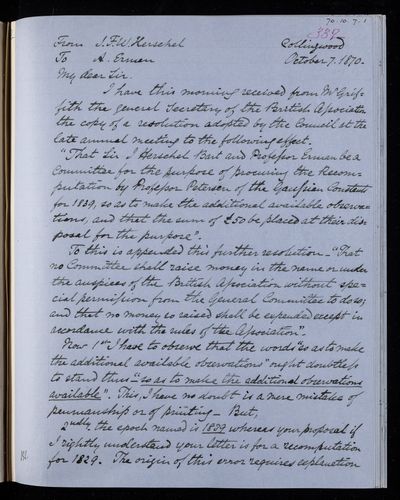 70.10.7.1
339
From J.F.W Herschel Collingwood
To A. Erman October 7. 1870.
My dear Sir.
I have this morning received from Mr Grif=
fith the general Secretary of the British Association
the copy of a resolution adopted by the Council at the
late annual meeting to the following effect.
"That Sir J Herschel Bart and Professor Erman be a
Committee for the purpose of procuring the Recom=
putation by Professor Petersen of the Gaussian Constants
for 1839, so as to make the additional available observa=
tions, and that the sum of £50 be placed at their dis
posal for the purpose".
To this is appended this further resolution – "That
no Committee shall raise money in the name or under
the auspices of the British Association without spe=
cial permission from the General Committee to do so;
and that no money so raised shall be expended except in
accordance with the rules of the Association".
Now 1st I have to observe that the words "so as to make
the additional available observations" ought doubtless
to stand thus "so as to make the additional observations
available". This, I have no doubt is a mere mistake of
penmanship or of printing – But,
2ndly the epoch named is 1839 whereas your proposal if
I rightly understand your letter is for a recomputation
for 1829. The origin of this error requires explanation